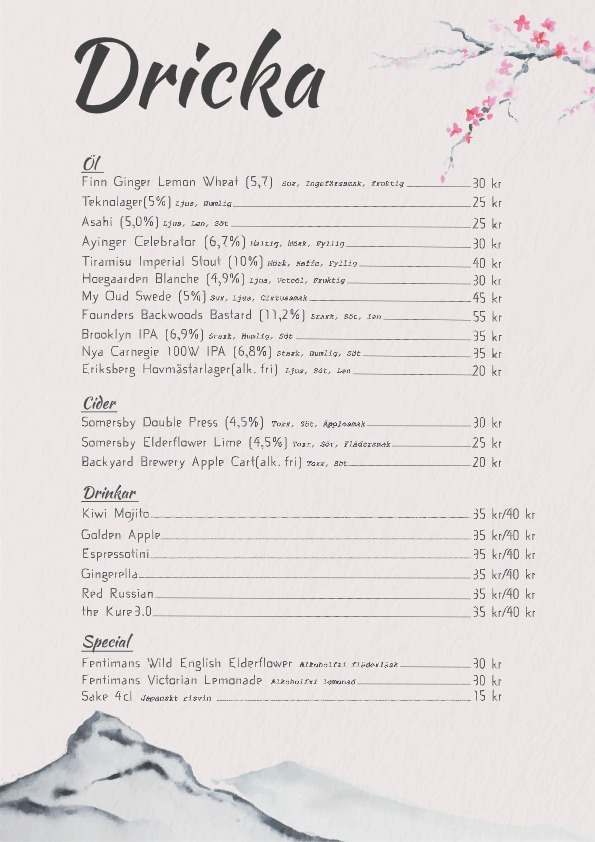 Dricka
Öl
Finn Ginger Lemon Wheat (5,7) Sur, Ingefärssmak, fruktig 30 kr
Teknolager(5%) Ljus, Humlig 25 kr
Asahi (5,0%) Ljus, Len, Söt 25 kr
Ayinger Celebrator (6,7%) Maltig, Mörk, Fyllig 30 kr
Tiramisu Imperial Stout (10%) Mörk, Kaffe, Fyllig 40 kr
Hoegaarden Blanche (4,9%) Ljus, Veteöl, Fruktig 30 kr
My Oud Swede (5%) Sur, Ljus, Citrussmak 45 kr
Founders Backwoods Bastard (11,2%) Stark, Söt, len 55 kr
Brooklyn IPA (6,9%) Stark, Humlig, Söt 35 kr
Nya Carnegie 100W IPA (6,8%) Stark, Humlig, Söt 35 kr
Eriksberg Hovmästarlager(alk. fri) Ljus, Söt, Len 20 kr
Cider
Somersby Double Press (4,5%) Torr, Söt, Äpplesmak 30 kr
Somersby Elderflower Lime (4,5%) Torr, Söt, Flädersmak 25 kr
Backyard Brewery Apple Cart(alk. fri) Torr, Söt 20 kr
Drinkar
Kiwi Mojito 35 kr/40 kr
Golden Apple 35 kr/40 kr
Espressotini 35 kr/40 kr
Gingerella 35 kr/40 kr
Red Russian 35 kr/40 kr
the Kure 3.0 35 kr/40 kr
Special
Fentimans Wild English Elderflower Alkoholfri fläderläsk 30 kr
Fentimans Victorian Lemonade Alkoholfri lemonad 30 kr
Sake 4cl Japanskt risvin 15 kr